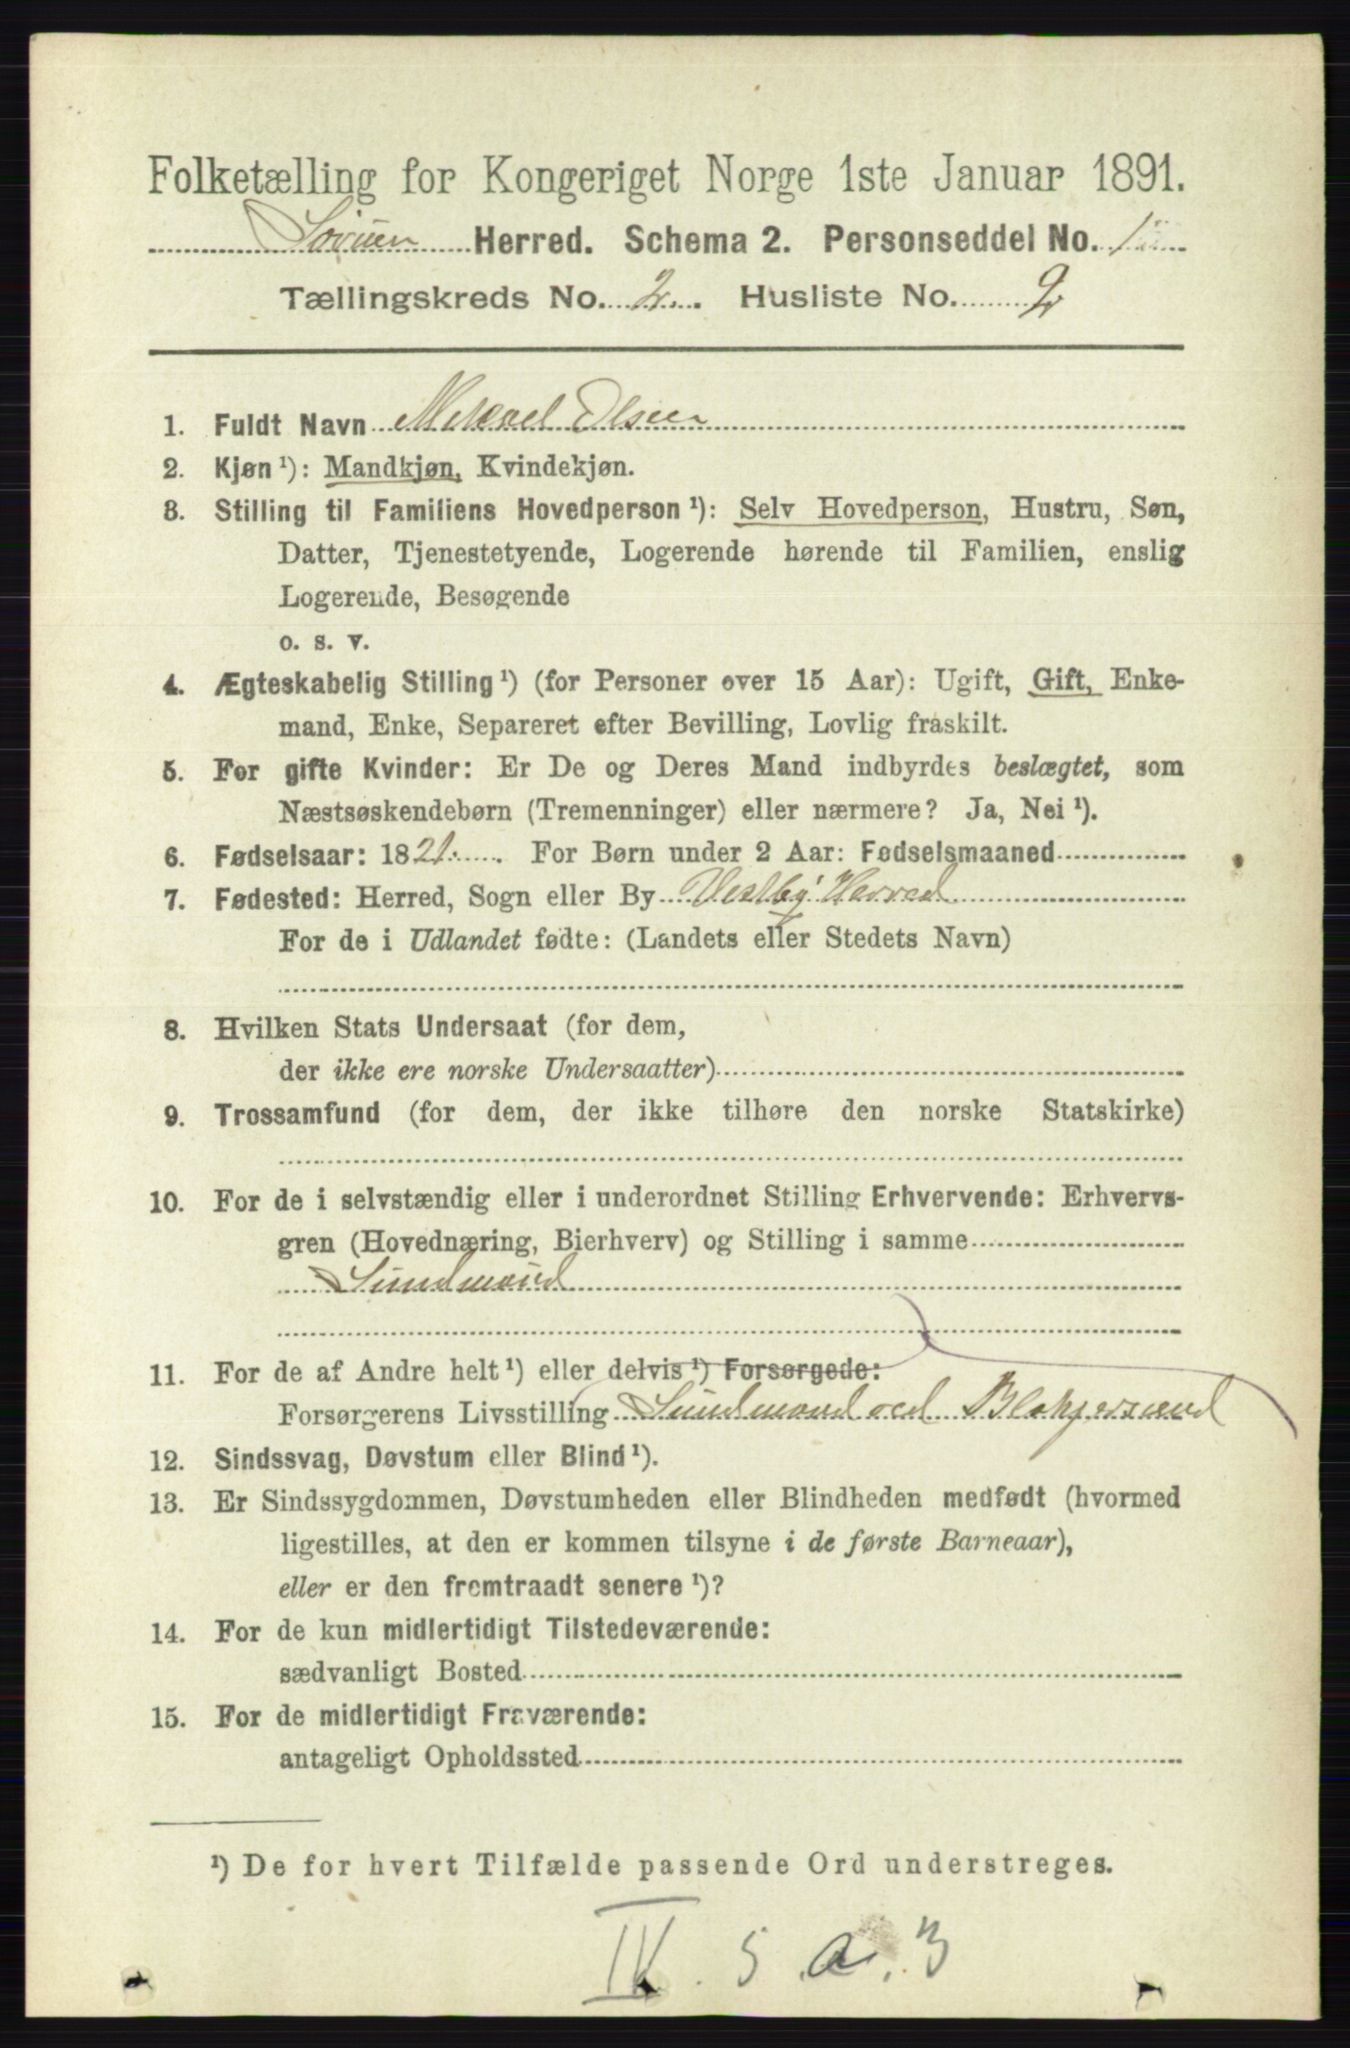 Folketælling for Kongeriget Norge 1ste Januar 1891.
Herred. Schema 2. Personseddel No. 1
Tællingskreds No. 2. Husliste No. 2
1. Fuldt Navn Mikael Olsen
2. Kjøn ¹): Mandkjøn, Kvindekjøn.
3. Stilling til Familiens Hovedperson ¹): Selv Hovedperson, Hustru, Søn,
Datter, Tjenestetyende, Logerende hørende til Familien, enslig
Logerende, Besøgende
o. s. v.
4. Ægteskabelig Stilling ¹) (for Personer over 15 Aar): Ugift, Gift, Enke-
mand, Enke, Separeret efter Bevilling, Lovlig fraskilt.
5. For gifte Kvinder: Er De og Deres Mand indbyrdes beslægtet, som
Næstsøskendebørn (Tremenninger) eller nærmere? Ja, Nei ¹).
6. Fødselsaar: 1821. For Børn under 2 Aar: Fødselsmaaned
7. Fødested: Herred, Sogn eller By Vestby Herred
For de i Udlandet fødte: (Landets eller Stedets Navn)
8. Hvilken Stats Undersaat (for dem,
der ikke ere norske Undersaatter)
9. Trossamfund (for dem, der ikke tilhøre den norske Statskirke)
10. For de i selvstændig eller i underordnet Stilling Erhvervende: Erhvervs-
gren (Hovednæring, Bierhverv) og Stilling i samme
Sundmand
11. For de af Andre helt ¹) eller delvis ¹) Forsørgede:
Forsørgerens Livsstilling Sundmand ved Blakjersund
12. Sindssvag, Døvstum eller Blind ¹).
13. Er Sindssygdommen, Døvstumheden eller Blindheden medfødt (hvormed
ligestilles, at den er kommen tilsyne i de første Barneaar),
eller er den fremtraadt senere ¹)?
14. For de kun midlertidigt Tilstedeværende:
sædvanligt Bosted
15. For de midlertidigt Fraværende:
antageligt Opholdssted
¹) De for hvert Tilfælde passende Ord understreges.
IV. 5 a. 3